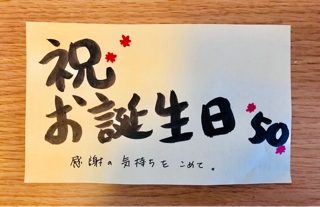 祝
お誕生日 50
感謝の気持ちをこめて。